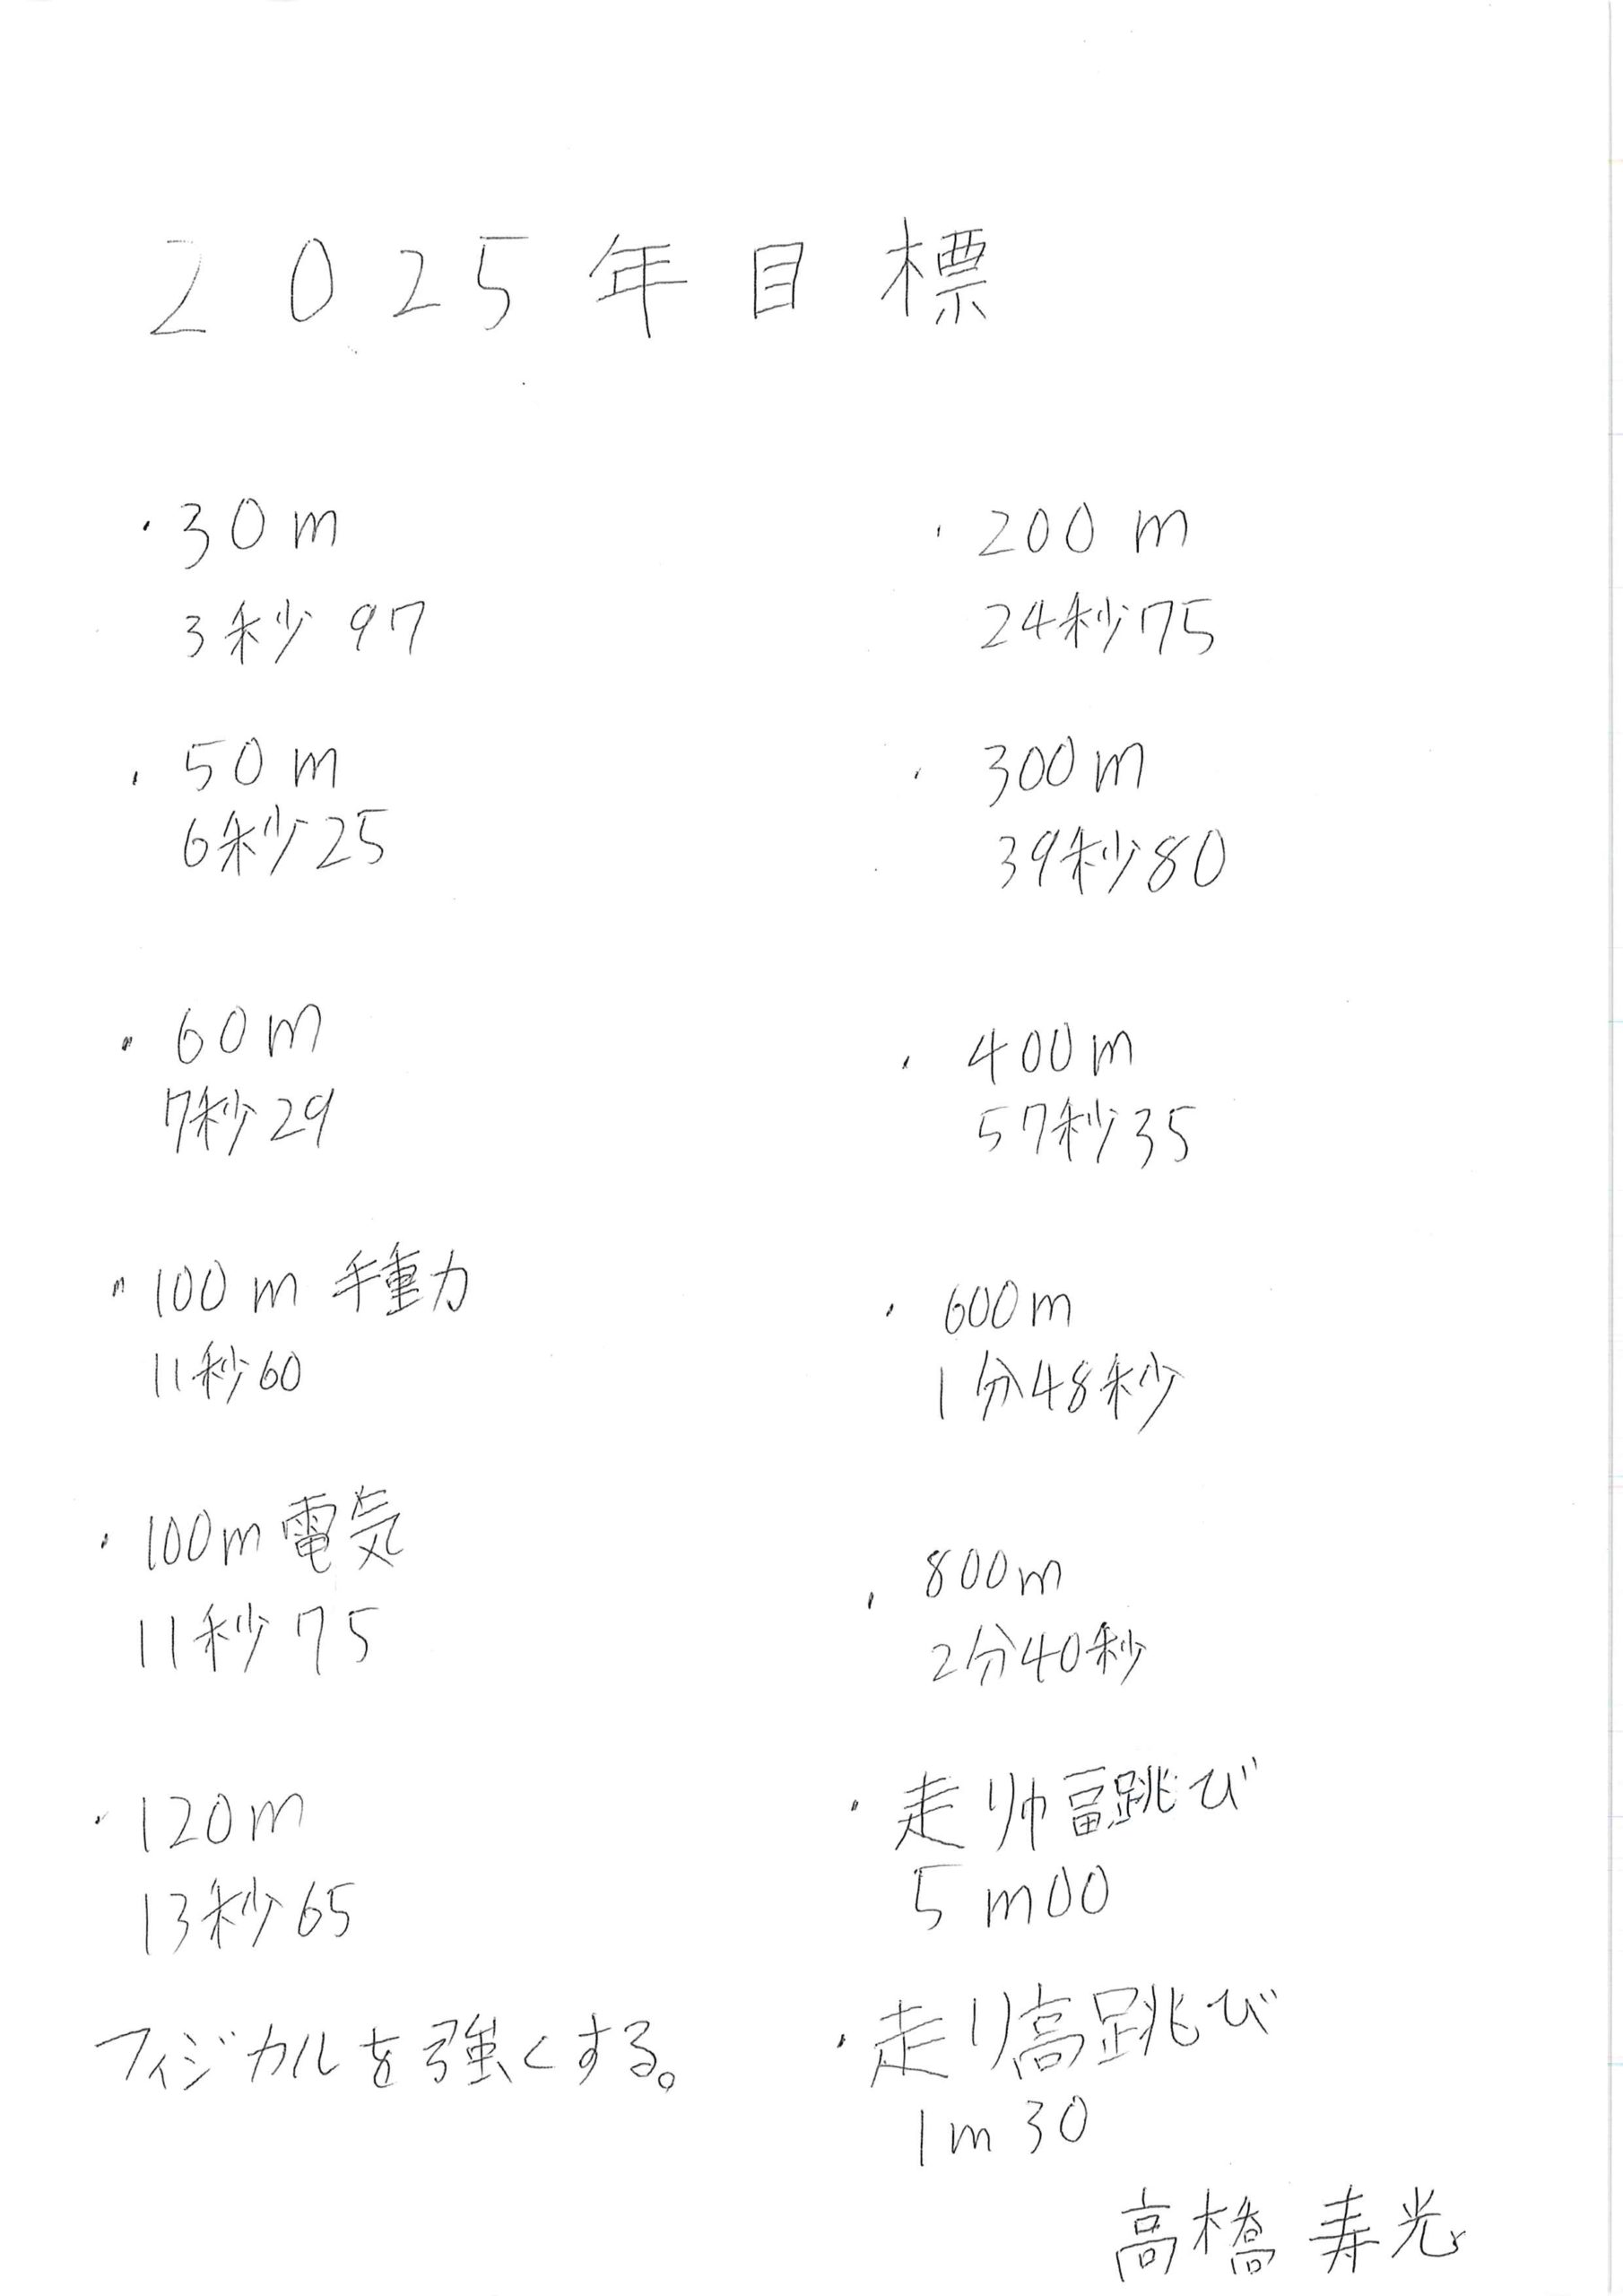 2025年目標
・30m
3秒97
・50m
6秒25
・60m
7秒29
・100m 手動
11秒60
・100m電気
11秒75
・120m
13秒65
フィジカルを強くする。
・200m
24秒75
・300m
39秒80
・400m
57秒35
・600m
1分48秒
・800m
2分40秒
・走り幅跳び
5m00
・走り高跳び
1m30
高橋寿光